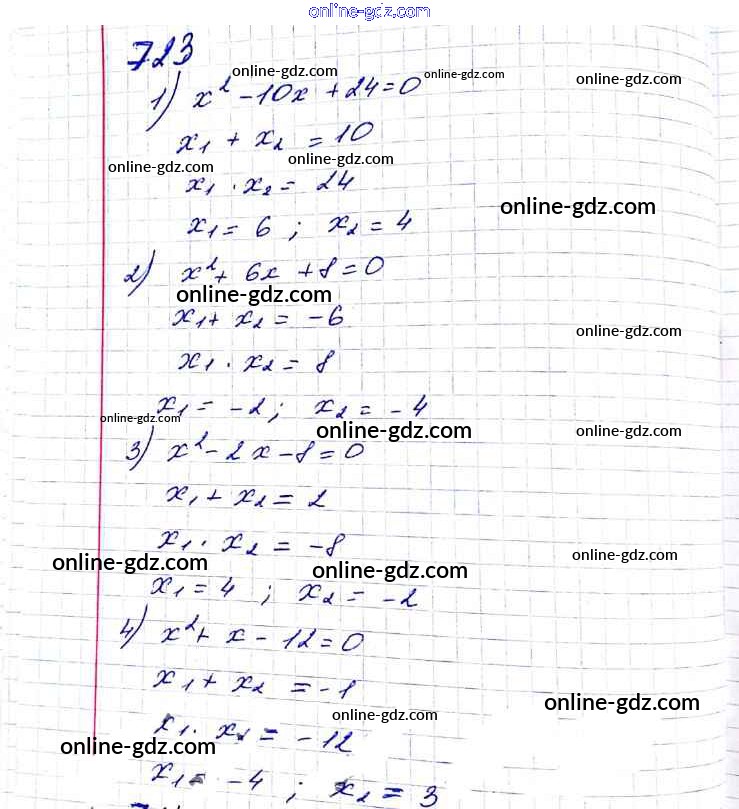 online-gdz.com
723
online-gdz.com online-gdz.com online-gdz.com
1) x² - 10x + 24 = 0
x₁ + x₂ = 10
online-gdz.com online-gdz.com
x₁ · x₂ = 24
online-gdz.com
x₁ = 6 ; x₂ = 4
2) x² + 6x + 8 = 0
online-gdz.com
x₁ + x₂ = -6
online-gdz.com
x₁ · x₂ = 8
x₁ = -2 ; x₂ = -4
online-gdz.com online-gdz.com online-gdz.com
3) x² - 2x - 8 = 0
x₁ + x₂ = 2
x₁ · x₂ = -8
online-gdz.com online-gdz.com online-gdz.com
x₁ = 4 ; x₂ = -2
4) x² + x - 12 = 0
x₁ + x₂ = -1
online-gdz.com online-gdz.com
x₁ · x₂ = -12
online-gdz.com
x₁ = -4 ; x₂ = 3